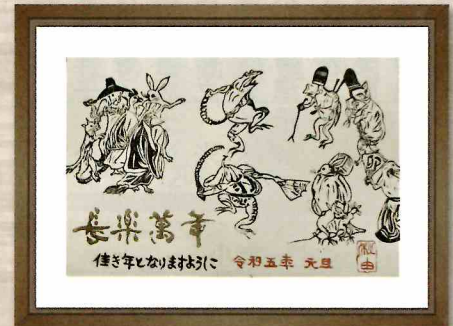 長楽萬年
佳き年となりますように 令和五年 元旦